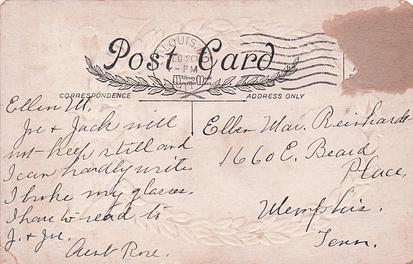 Post Card
LOUIS,
PM
CORRESPONDENCE
ADDRESS ONLY
Ellen M,
Joe & Jack will
not keep still and
I can hardly write
I broke my glasses.
I have to read to
J. & Joe.
Aunt Rose.
Ellen Mae Reinhardt
1660 E.
Place,
Memphis,
Tenn.